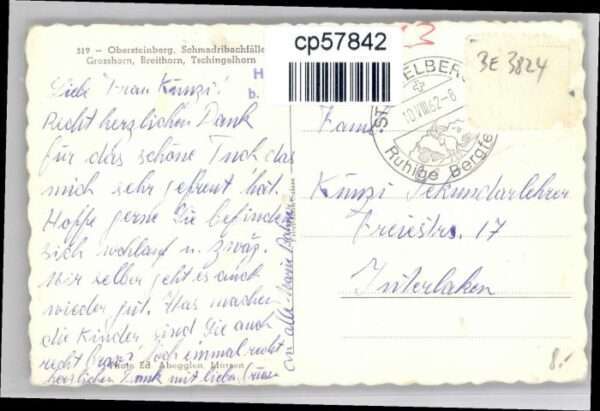 319 — Obersteinberg, Schmadribachfälle
Grosshorn, Breithorn, Tschingelhorn
cp57842
BE 3824
10.VIII.62-8
Ruhige Bergfe
H
b.
Liebe Frau Künzi!
Recht herzlichen Dank
für das schöne Tuch das
mich sehr gefreut hat.
Hoffe gerne Sie befinden
sich wohlauf u. zwäg.
Mir selber geht es auch
wieder gut. Was machen
die Kinder sind Sie auch
recht noch einmal recht
herzlichen Dank mit lieben
an alle Marie
Fam.
Künzi Sekundarlehrer
Freiestrs. 17
Interlaken
Photo Ed. Abegglen, Mürren
8.-